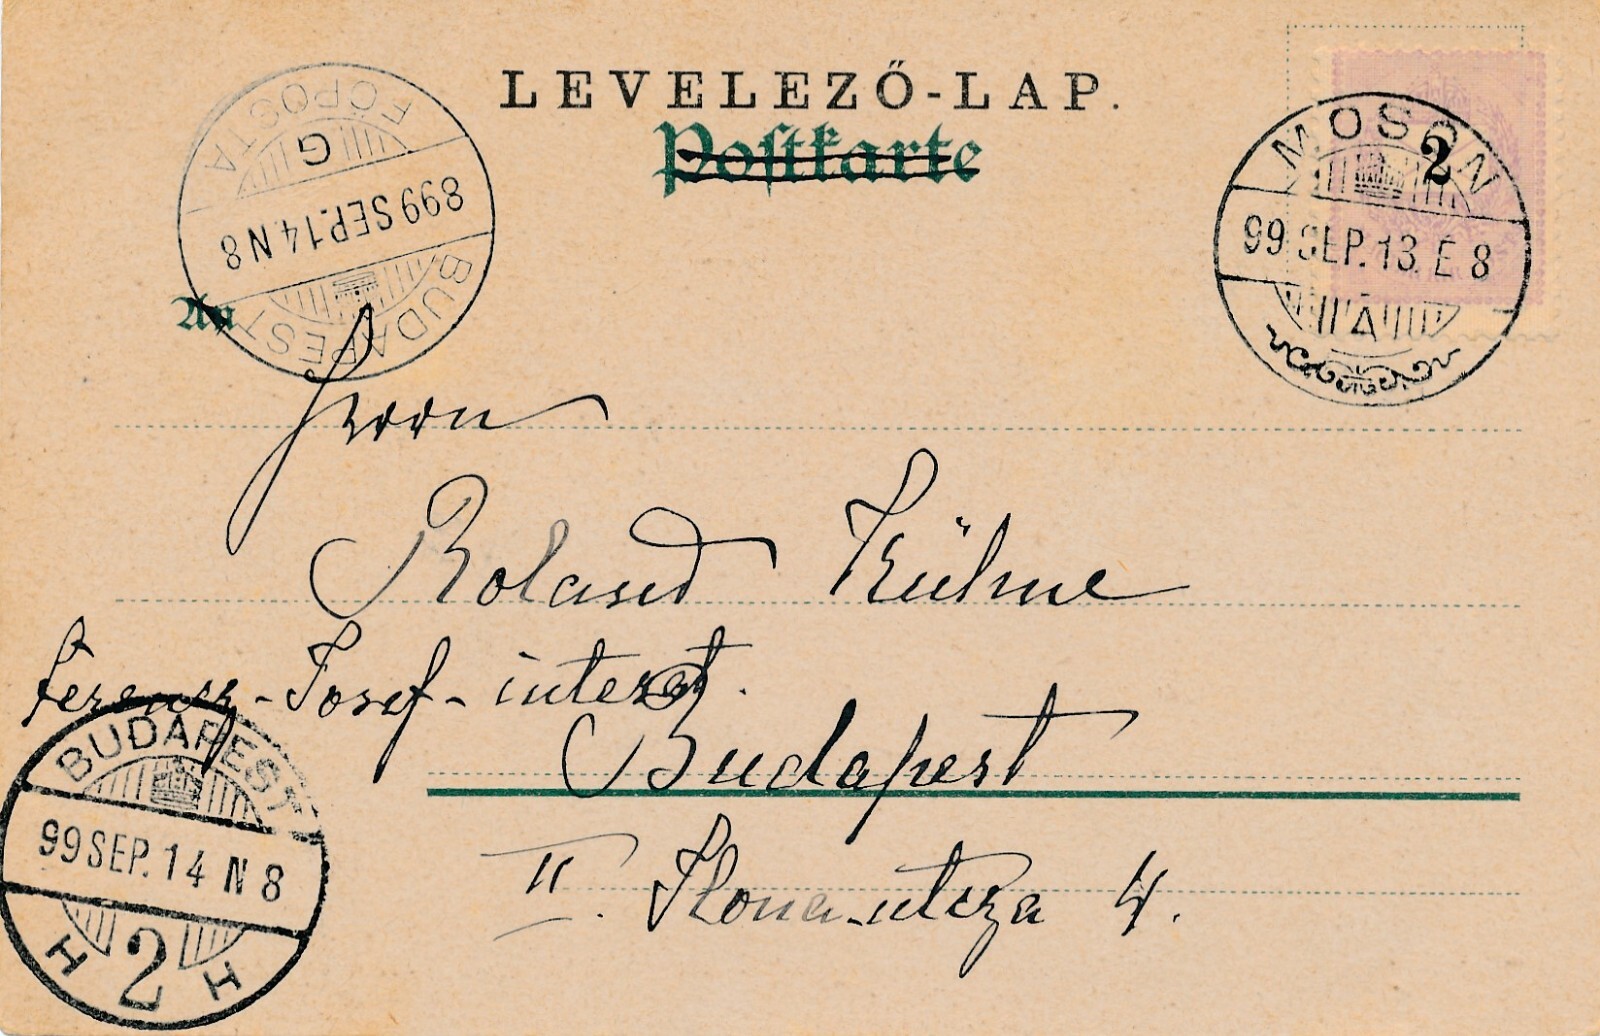 LEVELEZŐ-LAP.
Postkarte
BUDAPEST
FŐPOSTA
G
899 SEP.14. N 8
MOSON
2
99 SEP. 13. E 8
A
An
Herrn
Roland Kühne
Ferencz-Josef-interat.
Budapest
II. Ilona-utcza 4.
BUDAPEST
99 SEP. 14 N 8
H 2 H